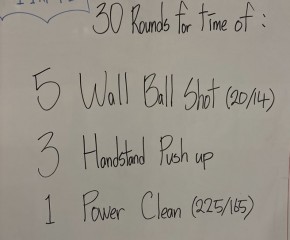 30 Rounds for time of :
5 Wall Ball Shot (20/14)
3 Handstand Push up
1 Power Clean (225/165)